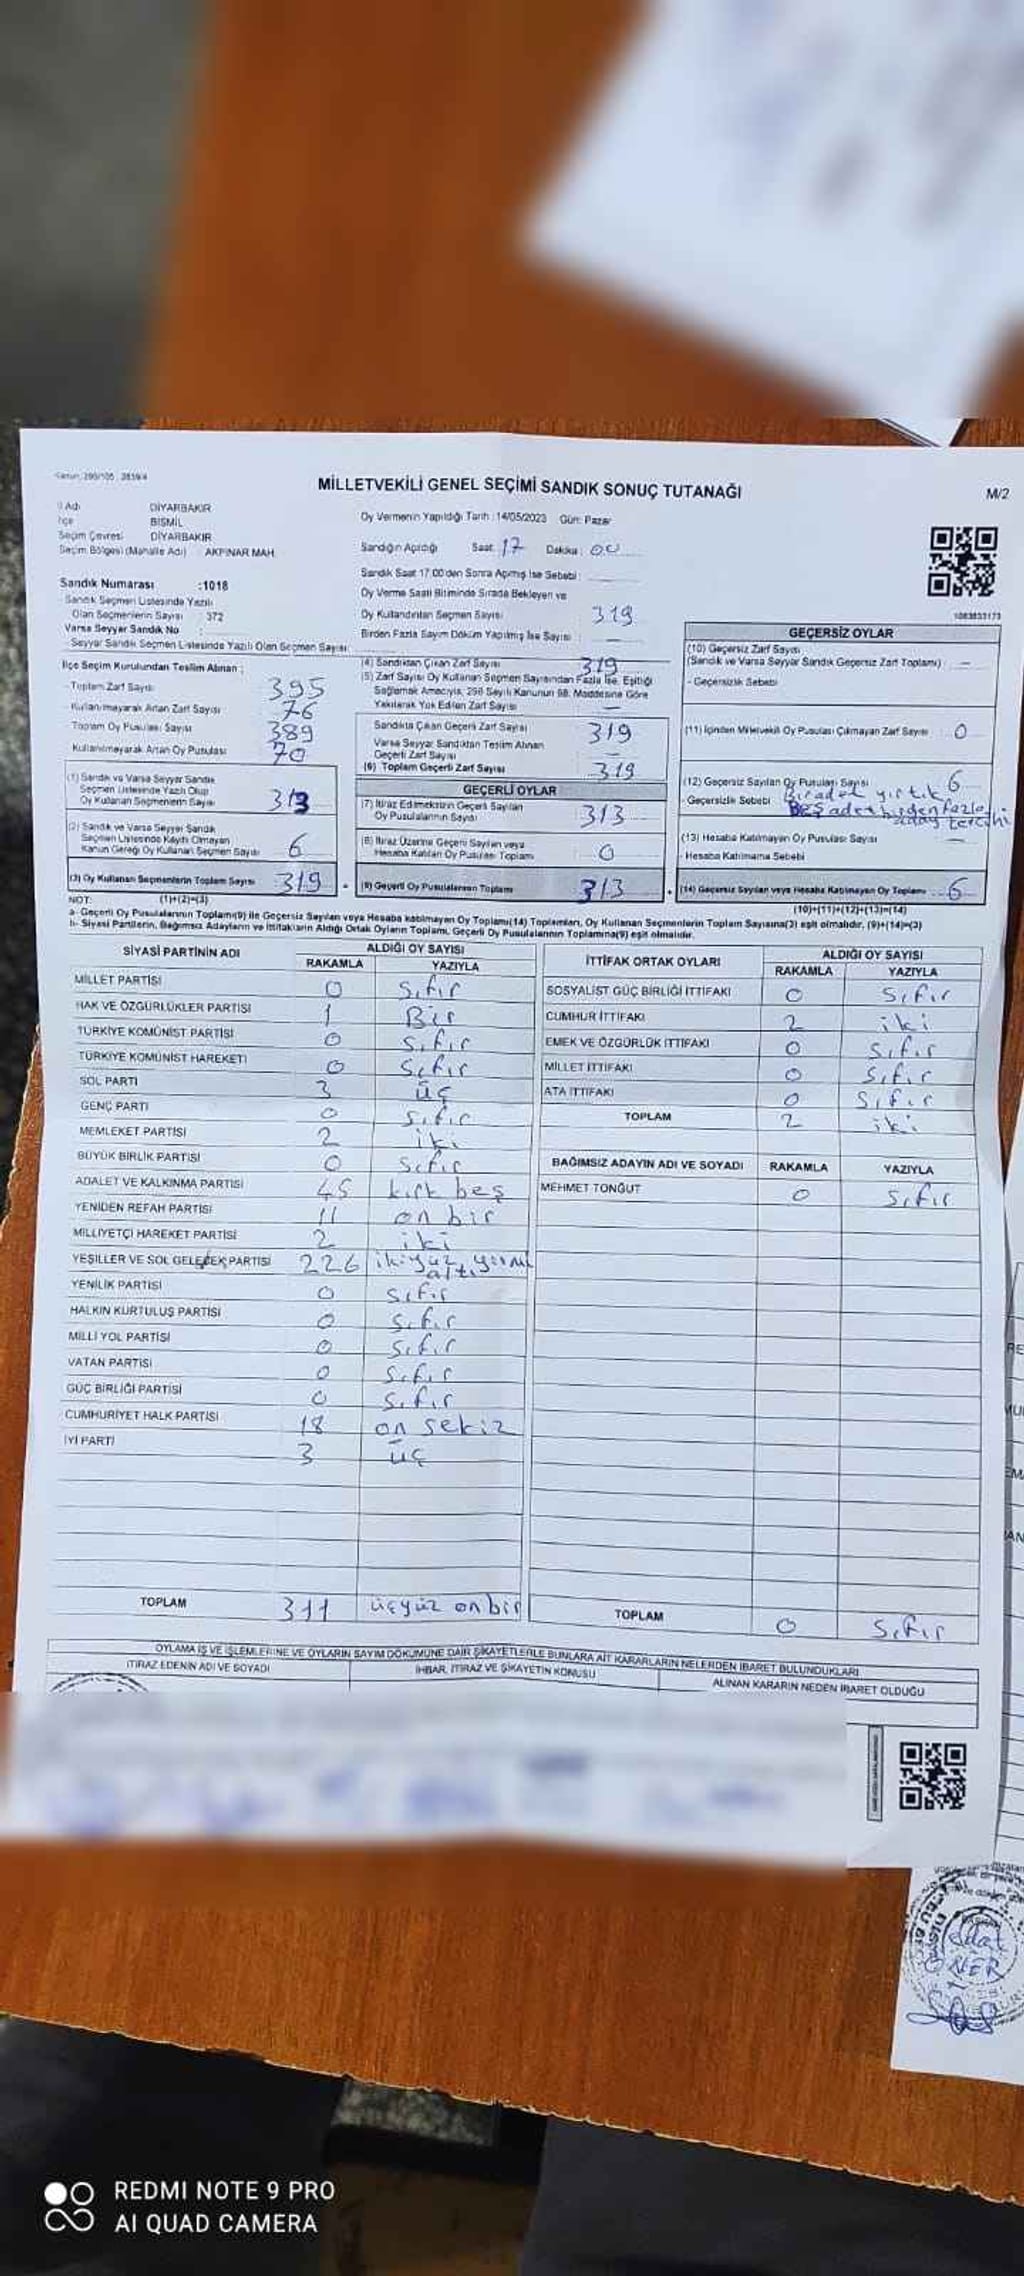 MİLLETVEKİLİ GENEL SEÇİMİ SANDIK SONUÇ TUTANAĞI
M/2
İl Adı DİYARBAKIR
İlçe BİSMİL
Seçim Çevresi DİYARBAKIR
Seçim Bölgesi (Mahalle Adı) : AKPINAR MAH.
Sandık Numarası :1018
Sandık Seçmen Listesinde Yazılı
Olan Seçmenlerin Sayısı : 372
Varsa Seyyar Sandık No :
Seyyar Sandık Seçmen Listesinde Yazılı Olan Seçmen Sayısı:
Oy Vermenin Yapıldığı Tarih : 14/05/2023 Gün: Pazar
Sandığın Açıldığı Saat: 17 Dakika : 00
Sandık Saat 17.00'den Sonra Açılmış İse Sebebi :
Oy Verme Saati Bitiminde Sırada Bekleyen ve
Oy Kullandırılan Seçmen Sayısı 319
Birden Fazla Sayım Döküm Yapılmış İse Sayısı : —
1083833173
İlçe Seçim Kurulundan Teslim Alınan ;
- Toplam Zarf Sayısı 395
- Kullanılmayarak Artan Zarf Sayısı 76
Toplam Oy Pusulası Sayısı 389
Kullanılmayarak Artan Oy Pusulası 70
(1) Sandık ve Varsa Seyyar Sandık
Seçmen Listesinde Yazılı Olup
Oy Kullanan Seçmenlerin Sayısı 313
(2) Sandık ve Varsa Seyyar Sandık
Seçmen Listesinde Kayıtlı Olmayan
Kanun Gereği Oy Kullanan Seçmen Sayısı 6
(3) Oy Kullanan Seçmenlerin Toplam Sayısı 319
(1)+(2)=(3)
(4) Sandıktan Çıkan Zarf Sayısı 319
(5) Zarf Sayısı Oy Kullanan Seçmen Sayısından Fazla İse, Eşitliği
Sağlamak Amacıyla, 298 Sayılı Kanunun 98. Maddesine Göre
Yakılarak Yok Edilen Zarf Sayısı —
Sandıkta Çıkan Geçerli Zarf Sayısı 319
Varsa Seyyar Sandıktan Teslim Alınan
Geçerli Zarf Sayısı —
(6) Toplam Geçerli Zarf Sayısı 319
GEÇERLİ OYLAR
(7) İtiraz Edilmeksizin Geçerli Sayılan
Oy Pusulalarının Sayısı 313
(8) İtiraz Üzerine Geçerli Sayılan veya
Hesaba Katılan Oy Pusulası Toplamı 0
(9) Geçerli Oy Pusulalarının Toplamı 313
GEÇERSİZ OYLAR
(10) Geçersiz Zarf Sayısı
(Sandık ve Varsa Seyyar Sandık Geçersiz Zarf Toplamı) —
- Geçersizlik Sebebi
(11) İçinden Milletvekili Oy Pusulası Çıkmayan Zarf Sayısı 0
(12) Geçersiz Sayılan Oy Pusulası Sayısı 6
- Geçersizlik Sebebi Bir adet yırtık
Beş adet birden fazla
aday tercihi
(13) Hesaba Katılmayan Oy Pusulası Sayısı —
- Hesaba Katılmama Sebebi
(14) Geçersiz Sayılan veya Hesaba Katılmayan Oy Toplamı 6
(10)+(11)+(12)+(13)=(14)
NOT:
a- Geçerli Oy Pusulalarının Toplamı(9) ile Geçersiz Sayılan veya Hesaba katılmayan Oy Toplamı(14) Toplamları, Oy Kullanan Seçmenlerin Toplam Sayısına(3) eşit olmalıdır. (9)+(14)=(3)
b- Siyasi Partilerin, Bağımsız Adayların ve İttifakların Aldığı Ortak Oyların Toplamı, Geçerli Oy Pusulalarının Toplamına(9) eşit olmalıdır.
SİYASİ PARTİNİN ADI ALDIĞI OY SAYISI
RAKAMLA YAZIYLA
MİLLET PARTİSİ 0 Sıfır
HAK VE ÖZGÜRLÜKLER PARTİSİ 1 Bir
TÜRKİYE KOMÜNİST PARTİSİ 0 Sıfır
TÜRKİYE KOMÜNİST HAREKETİ 0 Sıfır
SOL PARTİ 3 üç
GENÇ PARTİ 0 Sıfır
MEMLEKET PARTİSİ 2 iki
BÜYÜK BİRLİK PARTİSİ 0 Sıfır
ADALET VE KALKINMA PARTİSİ 45 kırk beş
YENİDEN REFAH PARTİSİ 11 on bir
MİLLİYETÇİ HAREKET PARTİSİ 2 iki
YEŞİLLER VE SOL GELECEK PARTİSİ 226 ikiyüz yirmi
altı
YENİLİK PARTİSİ 0 sıfır
HALKIN KURTULUŞ PARTİSİ 0 Sıfır
MİLLİ YOL PARTİSİ 0 Sıfır
VATAN PARTİSİ 0 Sıfır
GÜÇ BİRLİĞİ PARTİSİ 0 Sıfır
CUMHURİYET HALK PARTİSİ 18 on sekiz
İYİ PARTİ 3 üç
TOPLAM 311 üçyüz on bir
İTTİFAK ORTAK OYLARI ALDIĞI OY SAYISI
RAKAMLA YAZIYLA
SOSYALİST GÜÇ BİRLİĞİ İTTİFAKI 0 Sıfır
CUMHUR İTTİFAKI 2 iki
EMEK VE ÖZGÜRLÜK İTTİFAKI 0 Sıfır
MİLLET İTTİFAKI 0 Sıfır
ATA İTTİFAKI 0 Sıfır
TOPLAM 2 iki
BAĞIMSIZ ADAYIN ADI VE SOYADI RAKAMLA YAZIYLA
MEHMET TONĞUT 0 Sıfır
TOPLAM 0 Sıfır
OYLAMA İŞ VE İŞLEMLERİNE VE OYLARIN SAYIM DÖKÜMÜNE DAİR ŞİKAYETLERLE BUNLARA AİT KARARLARIN NELERDEN İBARET BULUNDUKLARI
İTİRAZ EDENİN ADI VE SOYADI İHBAR, İTİRAZ VE ŞİKAYETİN KONUSU ALINAN KARARIN NEDEN İBARET OLDUĞU
ÖNER
REDMI NOTE 9 PRO
AI QUAD CAMERA